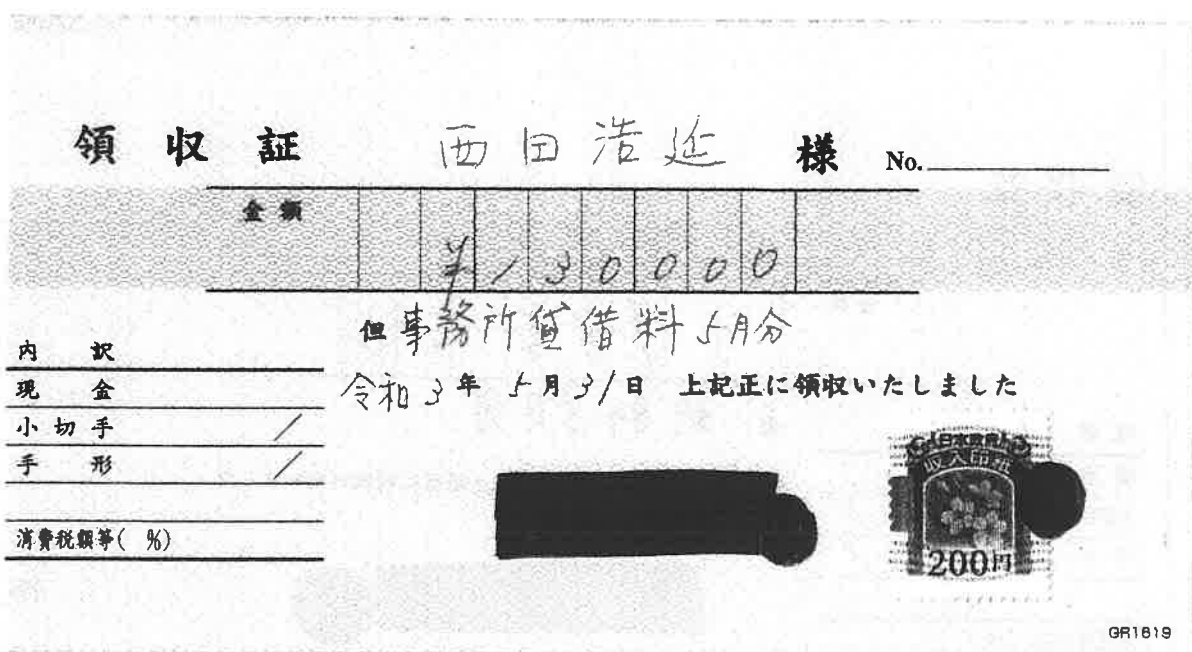 領収証 西田浩延 様 No.
金額 ¥130000
但事務所賃借料5月分
令和3年5月31日 上記正に領収いたしました
内訳
現金
小切手 /
手形 /
消費税額等( %)
日本政府
収入印紙
200円
GR1619